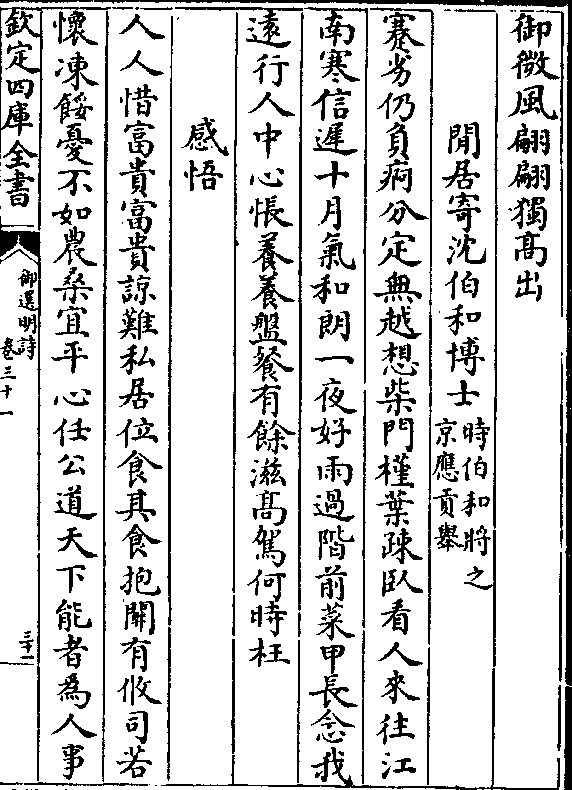 御微風翩翩獨高出
閒居寄沈伯和博士時伯和將之
京應貢舉
蹇劣仍負痾分定無越想柴門槿葉疎臥看人來往江
南寒信遲十月氣和朗一夜好雨過階前菜甲長念我
遠行人中心悵養養盤餐有餘滋髙駕何時枉
感悟
人人惜富貴富貴諒難私居位食其食抱關有攸司若
懷凍餒憂不如農桑宜平心任公道天下能者為人事
欽定四庫全書
御選明詩
卷三十一
三十一